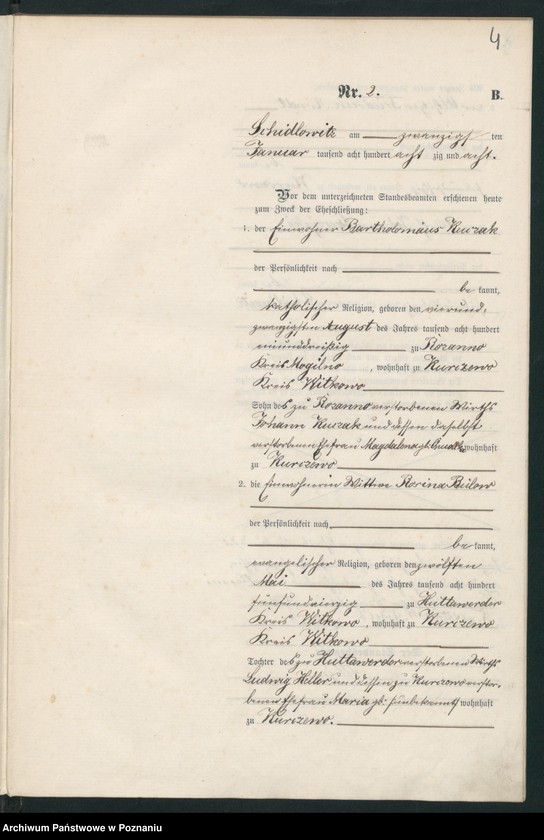 4
Nr. 2. B.
Schidlowitz am zwanzigsten
Januar tausend acht hundert acht zig und acht.
Vor dem unterzeichneten Standesbeamten erschienen heute
zum Zweck der Eheschließung:
1. der Einwohner Bartholomäus Kuczak
der Persönlichkeit nach
be kannt,
katholischer Religion, geboren den vierund-
zwanzigsten August des Jahres tausend acht hundert
neununddreißig zu Kozanno
Kreis Mogilno, wohnhaft zu Kurczewo
Kreis Witkowo
Sohn des zu Kozanno verstorbenen Wirths
Johann Kuczak und dessen daselbst
verstorbenen Ehefrau Magdalena gb. wohnhaft
zu Kurczewo
2. die Einwohnerin Wittwe Rosina Bülow
der Persönlichkeit nach
be kannt,
evangelischer Religion, geboren den zwölften
Mai des Jahres tausend acht hundert
fünfundvierzig zu Huttawerder
Kreis Witkowo, wohnhaft zu Kurczewo
Kreis Witkowo
Tochter des zu Huttawerder verstorbenen Wirths
Ludwig Heller und dessen zu Kurczewo verstor-
benen Ehefrau Maria gb. (unbekannt) wohnhaft
zu Kurczewo.
Archiwum Państwowe w Poznaniu